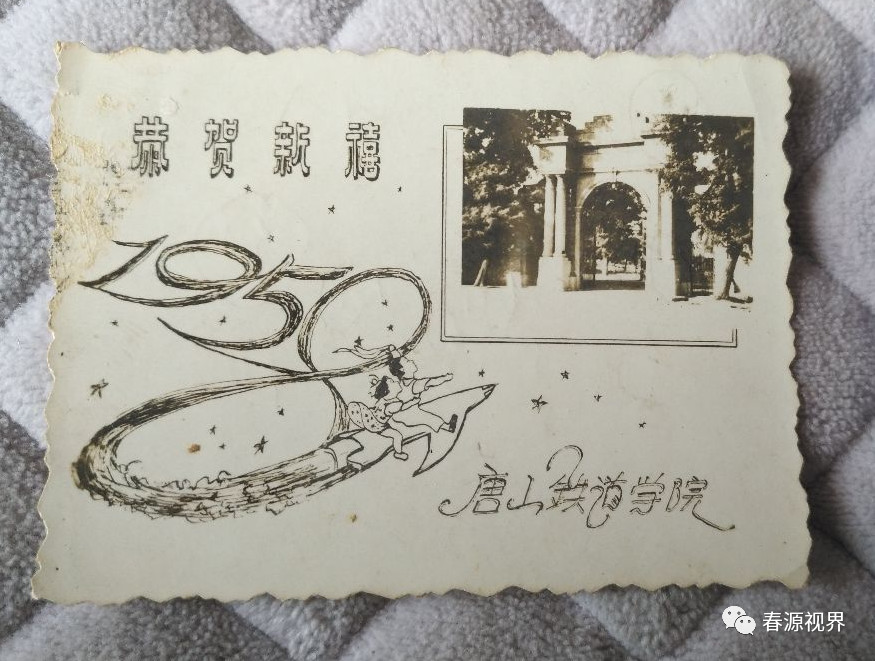 恭贺新禧
1958
唐山铁道学院
春源视界